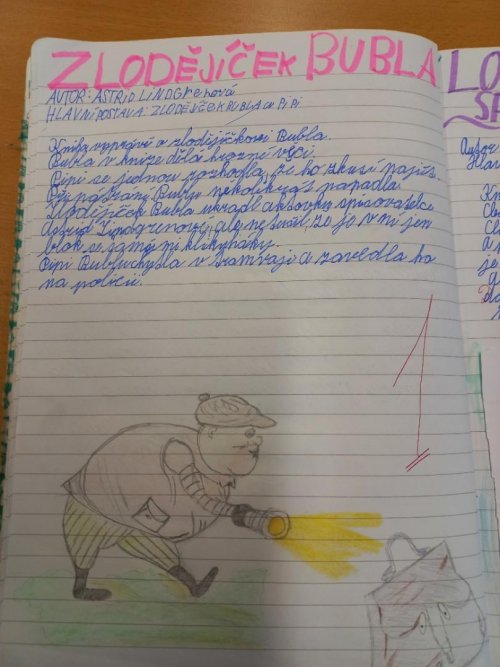 ZLODĚJÍČEK BUBLA
AUTOR: ASTRID LINDGrenová
HLAVNÍ POSTAVA: ZLODĚJÍČEK BUBLA a PiPi
Kniha vypráví o zlodějíčkovi Bubla.
Bubla v knize dělá hrozné věci.
Pipi se jednou rozhodla, že ho zkusí najít.
Bublu několikrát napadla.
Zlodějíček Bubla ukradl aktovku spisovatelce
Astrid Lindgrenové, ale netušil, že je v ní jen
blok se samými klikyháky.
Pipi Bublu chytla v tramvaji a zavedla ho
na policii.
1
LO
SP
Autor
Hlav
Kn